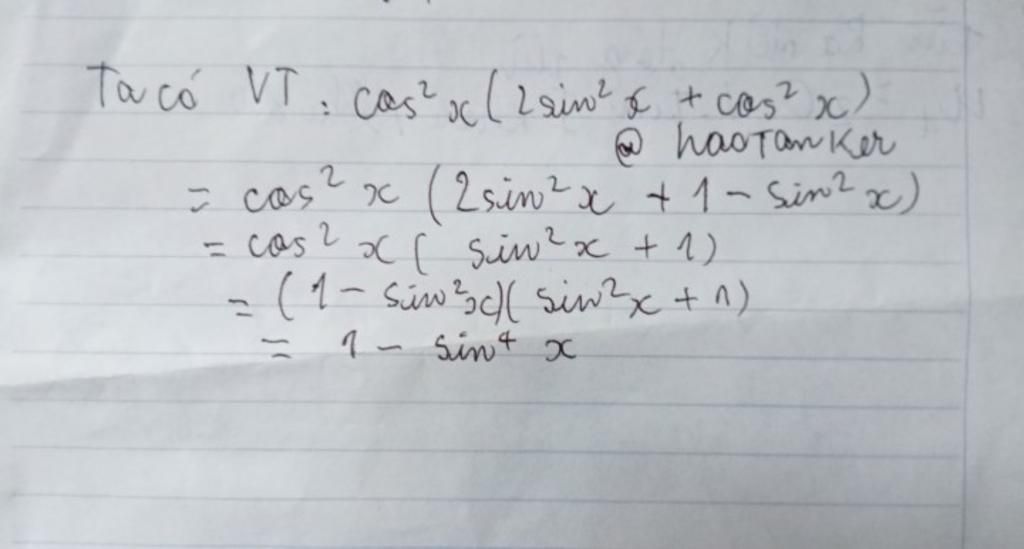 Ta có VT : cos² x ( 2 sin² x + cos² x )
@ haoTanKer
= cos² x ( 2 sin² x + 1 - sin² x )
= cos² x ( sin² x + 1 )
= ( 1 - sin² x ) ( sin² x + 1 )
= 1 - sin⁴ x